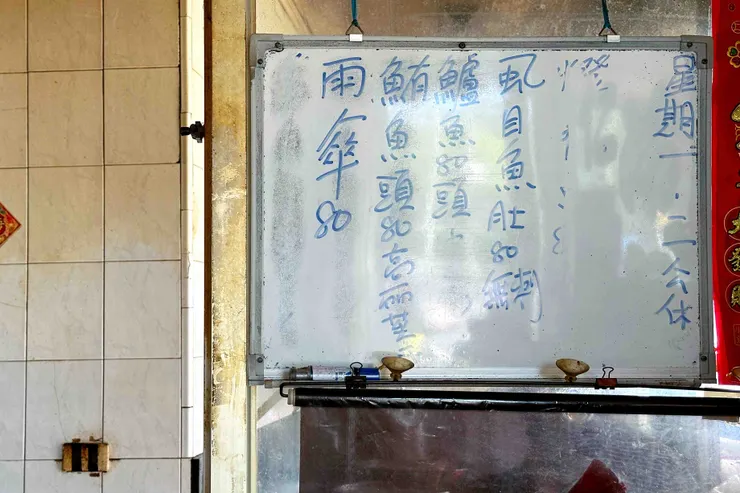 星期一.二公休
虱目魚肚80
鱸魚80頭
鮪魚頭80高麗菜
雨傘80